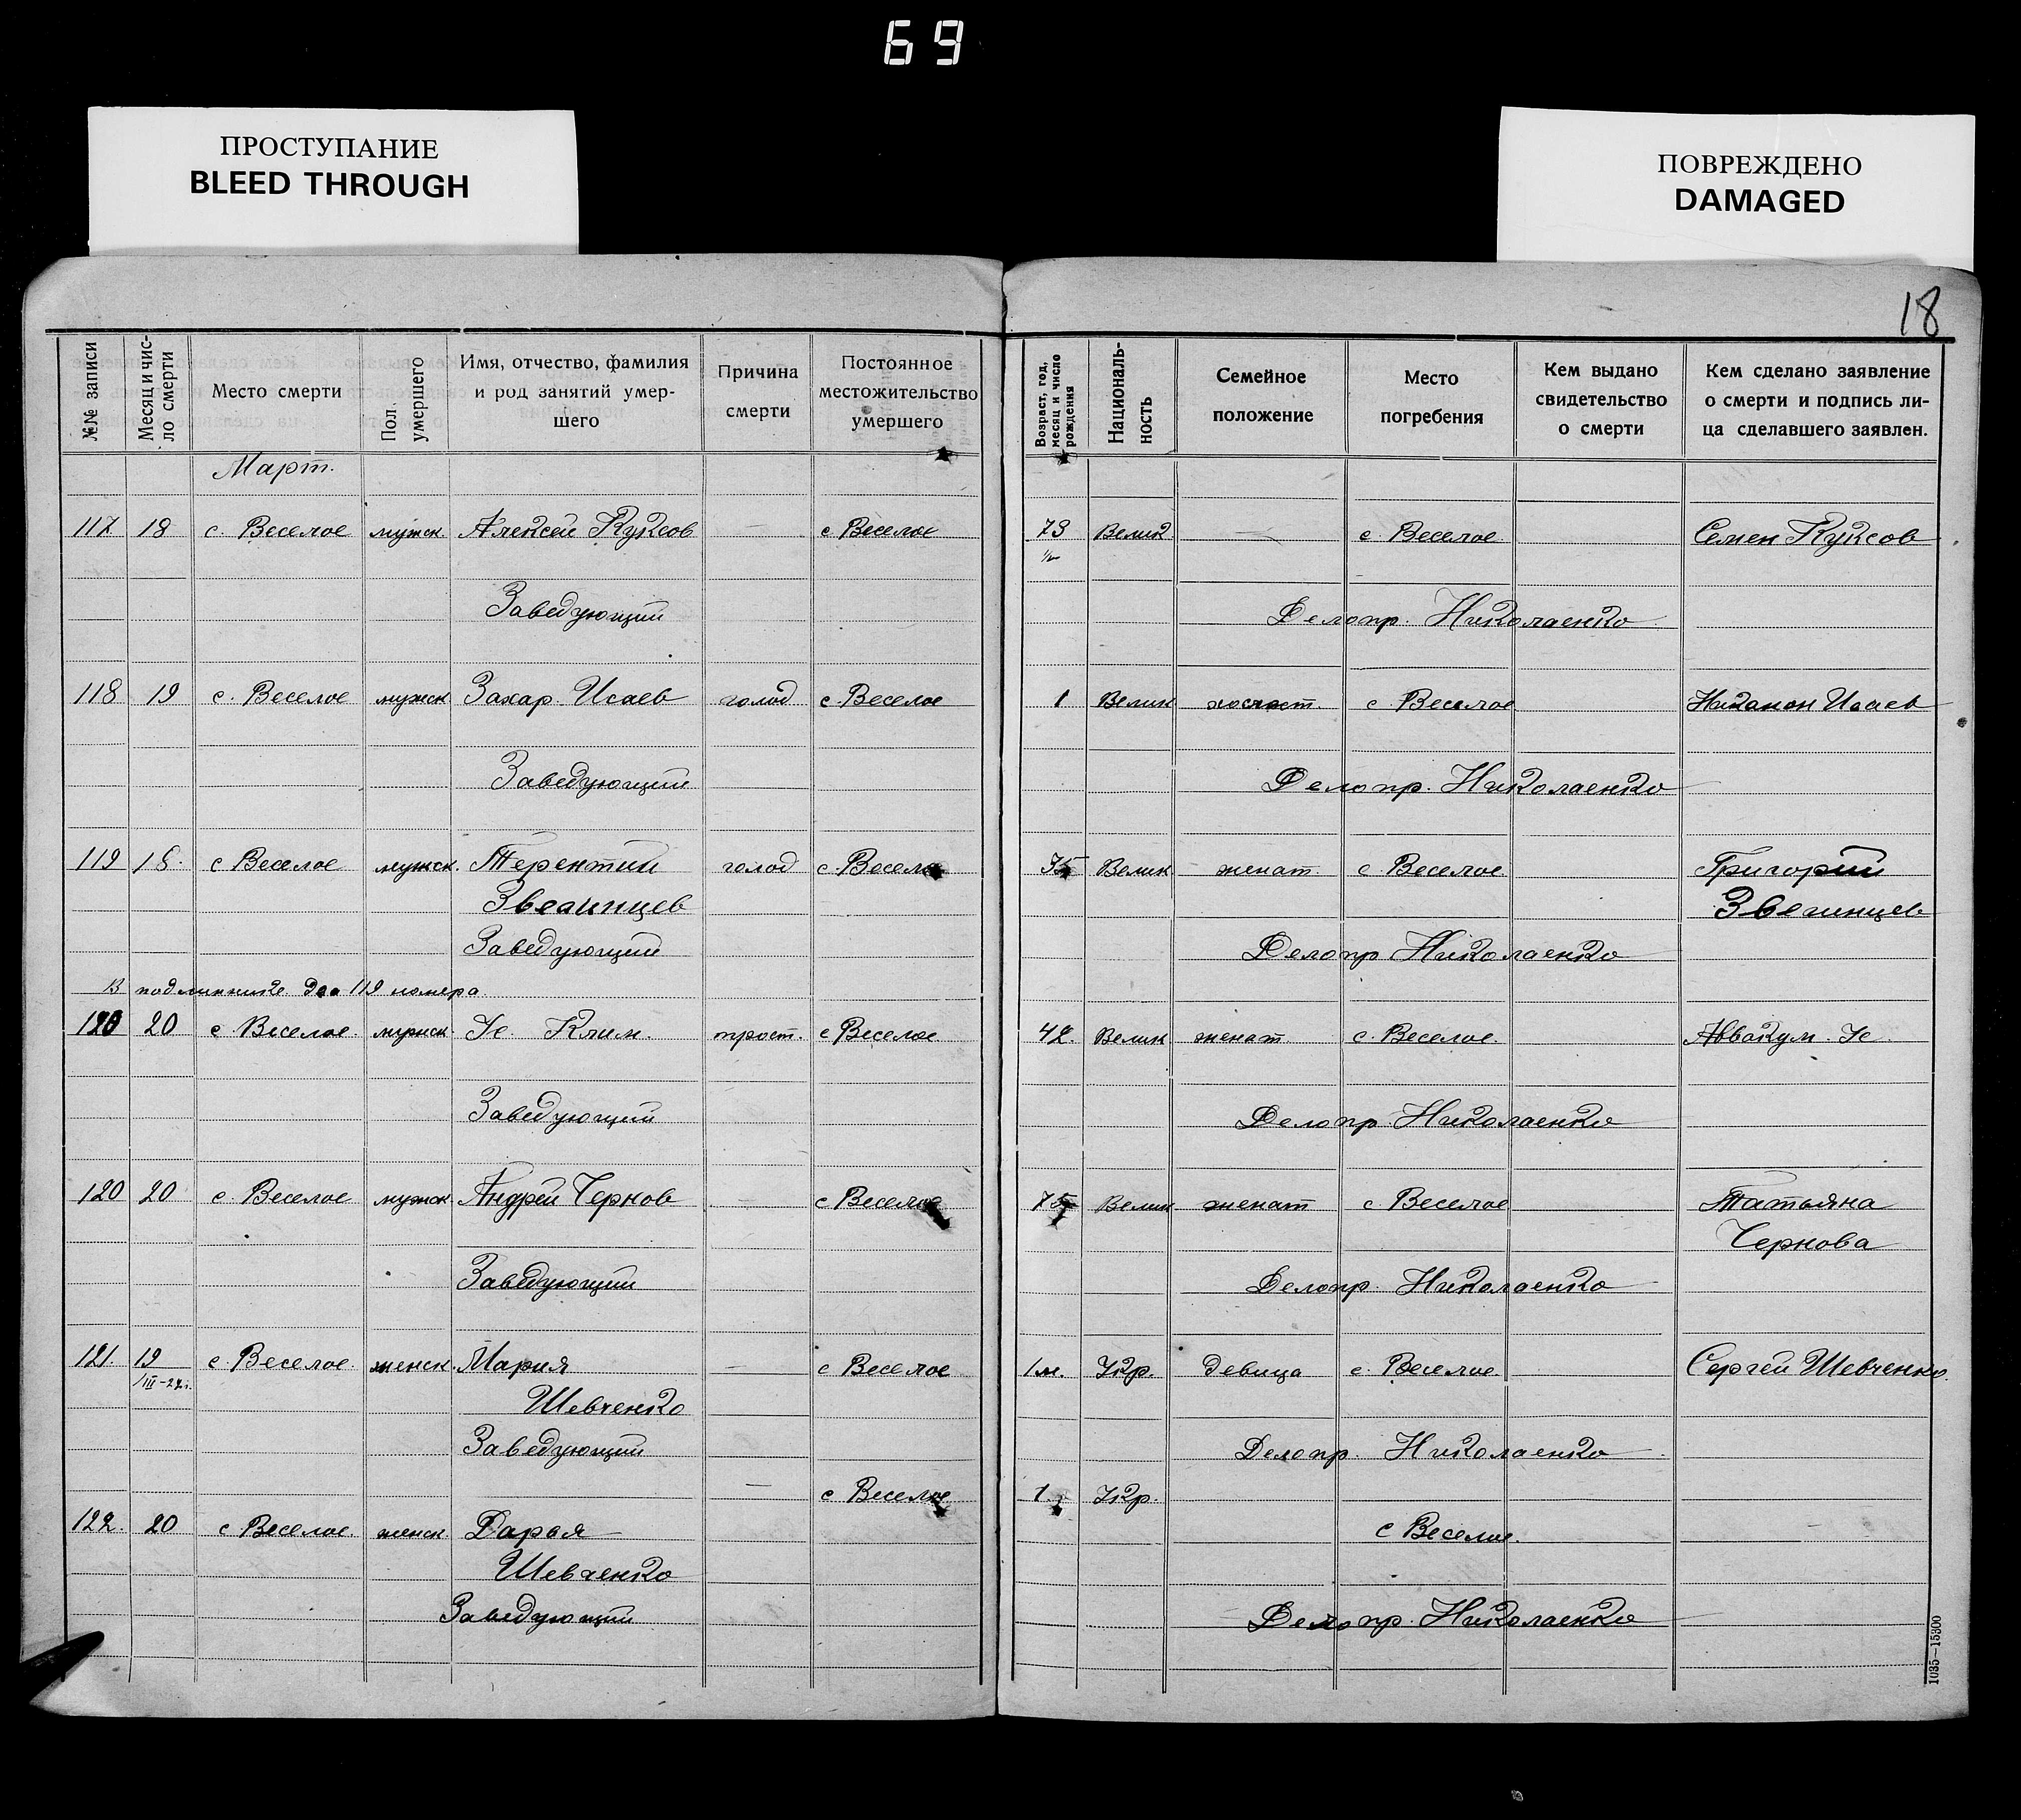 69
ПРОСТУПАНИЕ
BLEED THROUGH
ПОВРЕЖДЕНО
DAMAGED
18
№№ записи
Месяц и чис-
ло смерти
Место смерти
Пол.
умершего
Имя, отчество, фамилия
и род занятий умер-
шего
Причина
смерти
Постоянное
местожительство
умершего
Возраст, год,
месяц и число
рождения
Националь-
ность
Семейное
положение
Место
погребения
Кем выдано
свидетельство
о смерти
Кем сделано заявление
о смерти и подпись ли-
ца сделавшего заявлен.
Март.
117 18 с. Веселое мужск. Алексей Куксов — с Веселое 73 Велик — с Веселое Семен Куксов
1/2
Заведующий Делопр. Николаенко
118 19 с. Веселое мужск Захар Исаев голод с. Веселое 1 Велик холост. с Веселое Исаев
Заведующий Делопр. Николаенко
119 18. с Веселое мужск. Терентий голод с. Веселое 35 Велик женат. с Веселое Григорий
Звегинцев Звегинцев
Заведующий Делопр Николаенко
В подлиннике два 119 номера
120 20 с Веселое мужск. Клим. прост. с Веселое 42. Велик женат. с. Веселое. Аввакум
Заведующий Делопр. Николаенко
120 20 с. Веселое мужск. Андрей Чернов — с Веселое 75 Велик женат с Веселое Татьяна
Чернова
Заведующий Делопр. Николаенко
121. 19 с. Веселое. женск. Мария — с Веселое 1м. Укр. девица с. Веселое. Сергей Шевченко.
Шевченко
Заведующий Делопр. Николаенко
— с Веселое 1. Укр.
122. 20 с Веселое. женск Дарья с Веселое.
Шевченко
Заведующий Делопр. Николаенко
1035—15300